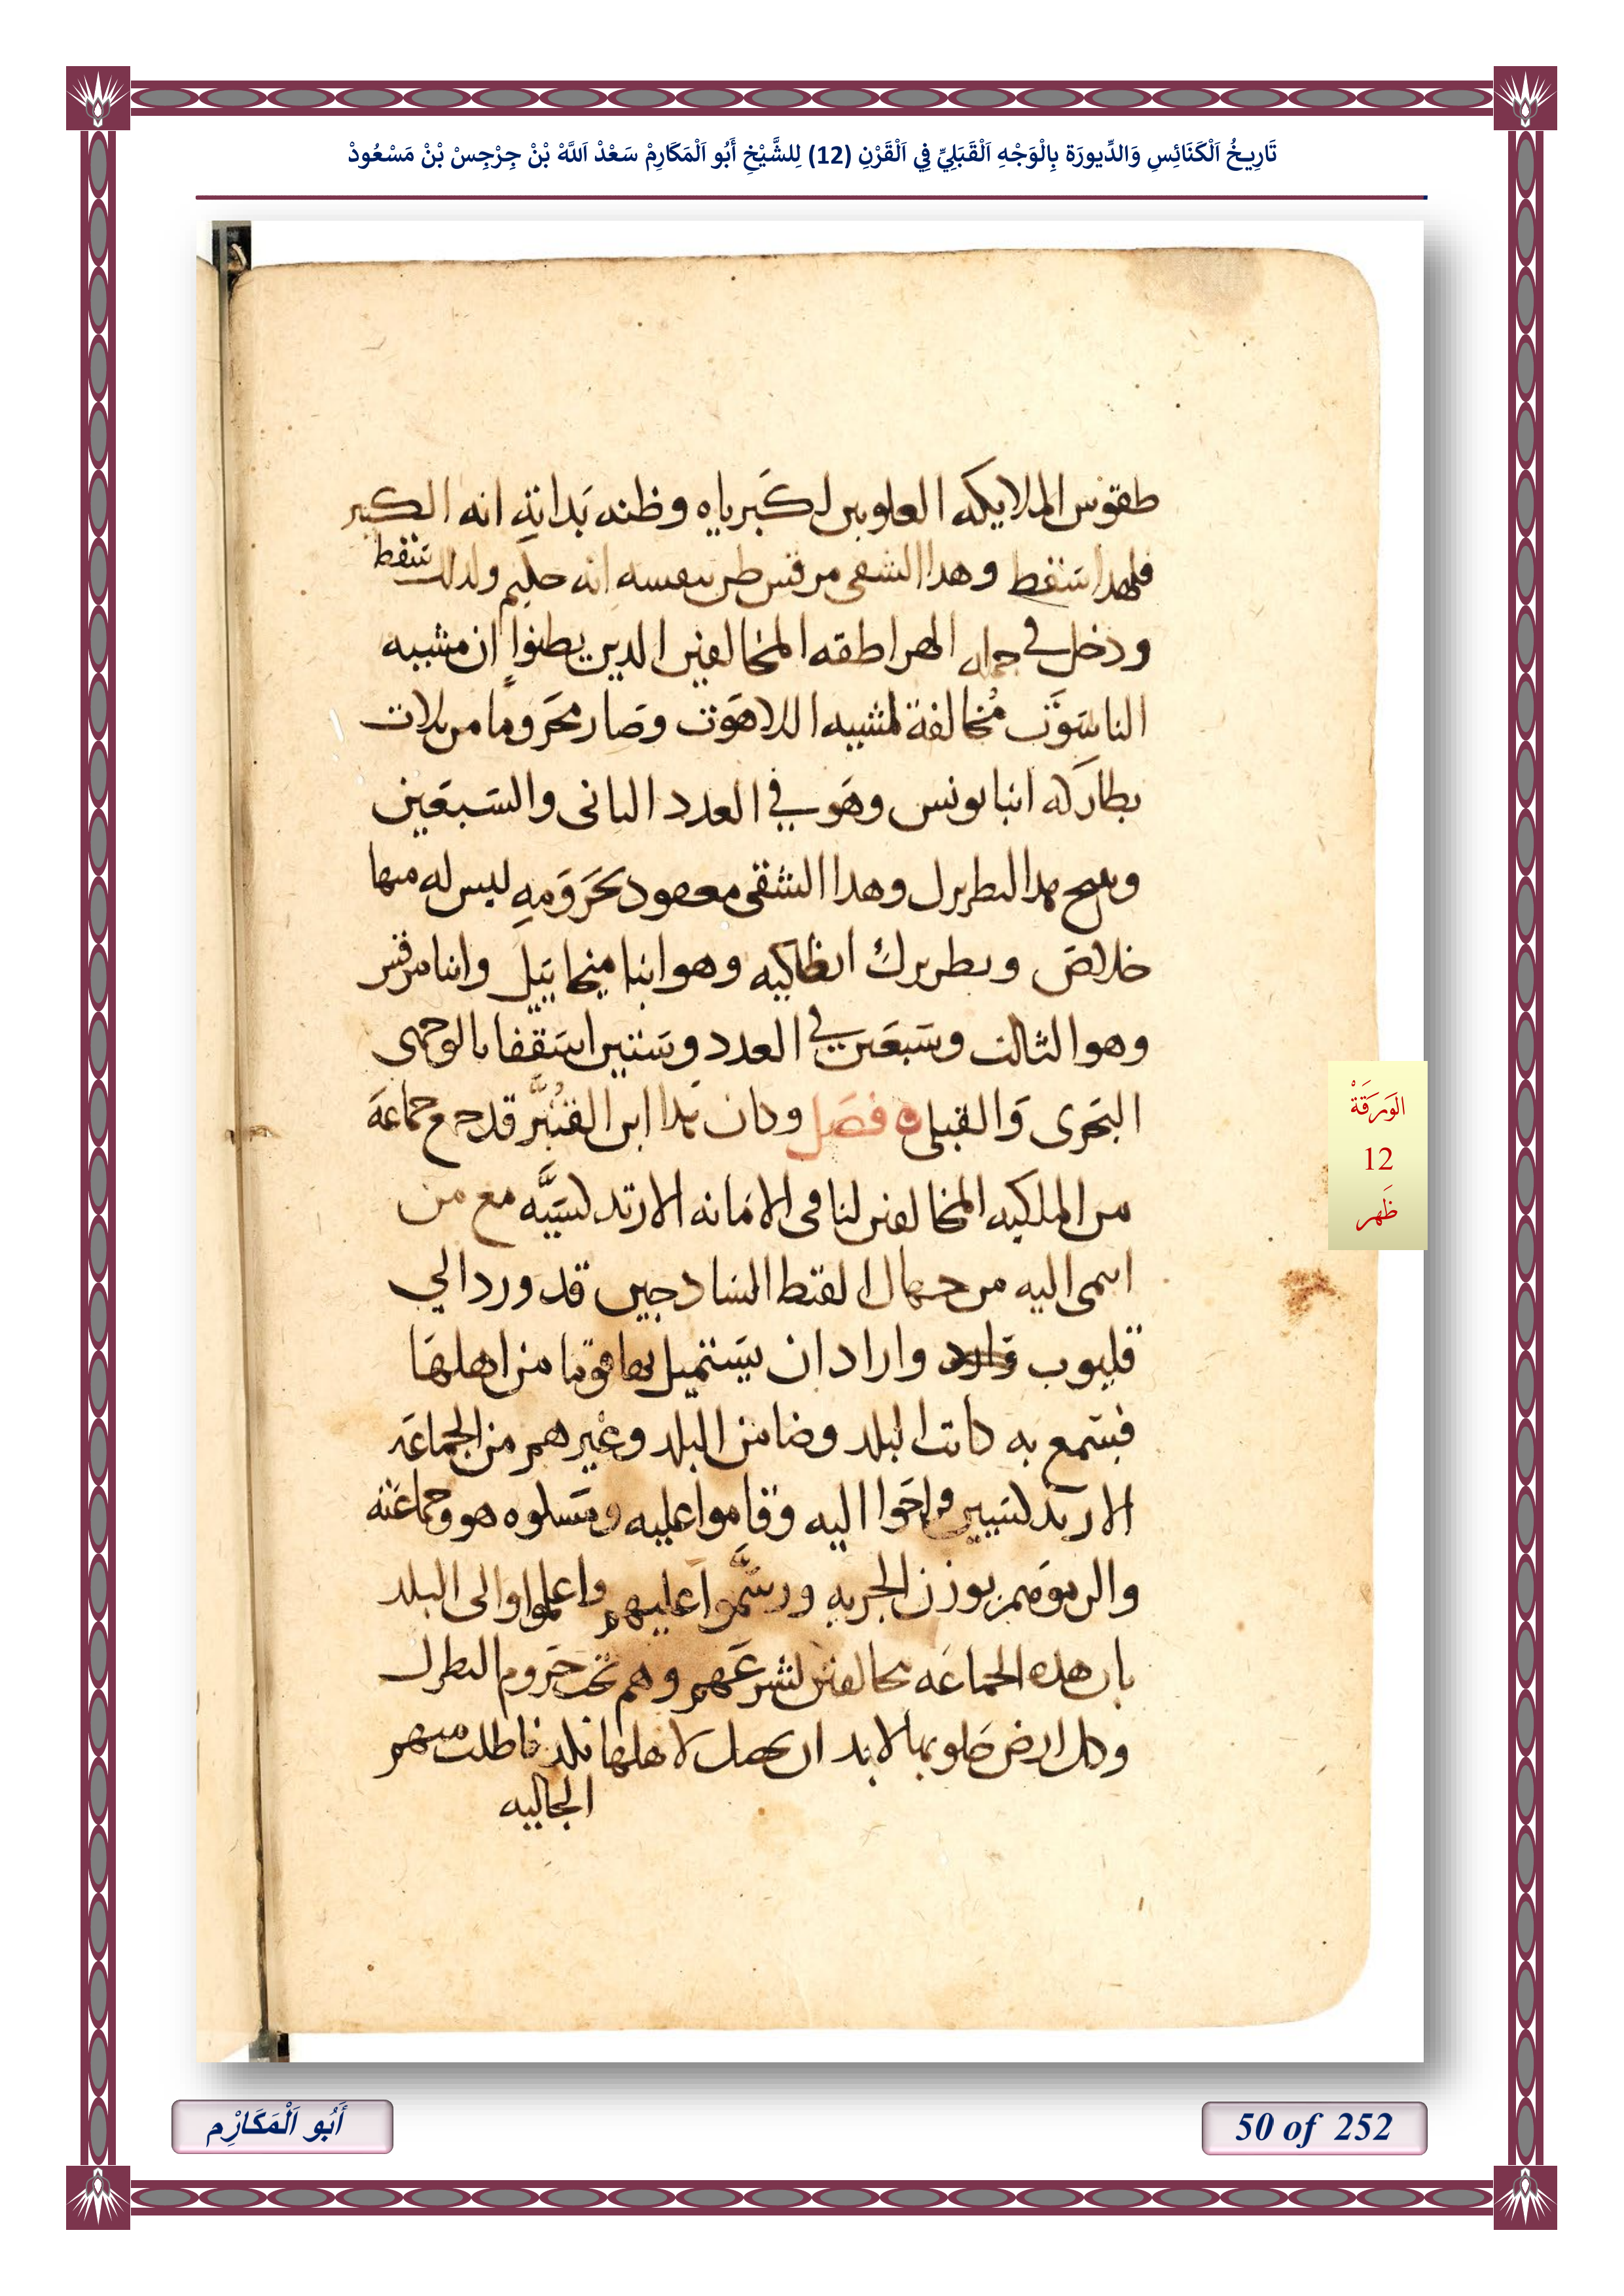 تَارِيخُ اَلْكَنَائِسِ وَالدِّيورَة بِالْوَجْهِ اَلْقَبَلِيِّ فِي اَلْقَرْنِ (12) لِلشَّيْخِ أَبُو اَلْمَكَارِمْ سَعْدْ اَللَّهْ بْنْ جِرْجِسْ بْنْ مَسْعُودْ
طقوس الملايكه العلويين لكبرياه وظنه بداته انه الكبير
فلهدا سقط وهدا الشقى مرقس ظن بنفسه انه حكيم ولدلك سقط
ودخل في جمله الهراطقه المخالفين الدين يظنوا ان مشييه
الناسوت مخالفة لمشييه اللاهوت وصار محروما من تلات
بطاركه انبا يونس وهو في العدد التانى والسبعين
هدا البطريرك وهدا الشقى معقود بحرومه ليس له منها
خلاص وبطريرك انطاكيه وهو انبا ميخاييل وانبا مرقس
وهو الثالث وسبعين في العدد وستين اسقفا بالوجهى
البحرى والقبلى فصل وكان هدا ابن القنبر قد جمع جماعة
من الملكيه المخالفين لنا فى الامانه الارتدكسيه مع من
انتمى اليه من جهال القبط السادجين قد ورد الي
قليوب واراد ان يستميل بها قوما من اهلها
فسمع به كاتب البلد وضامن البلد وغيرهم من الجماعه
الارتدكسيين وراحوا اليه وقاموا عليه ومسلوه هو وجماعته
والزموهم بوزن الجزيه ورسموا عليهم واعلموا والى البلد
بان هده الجماعه مخالفين لشرعهم وهم تحت حروم البطرك
وكل ارض حلو بها لابد ان يحصل لاهلها نكد فاطلب منهم
الجاليه
الوَرَقَةْ
12
ظَهر
أَبُو اَلْمَكَارِْم
50 of 252